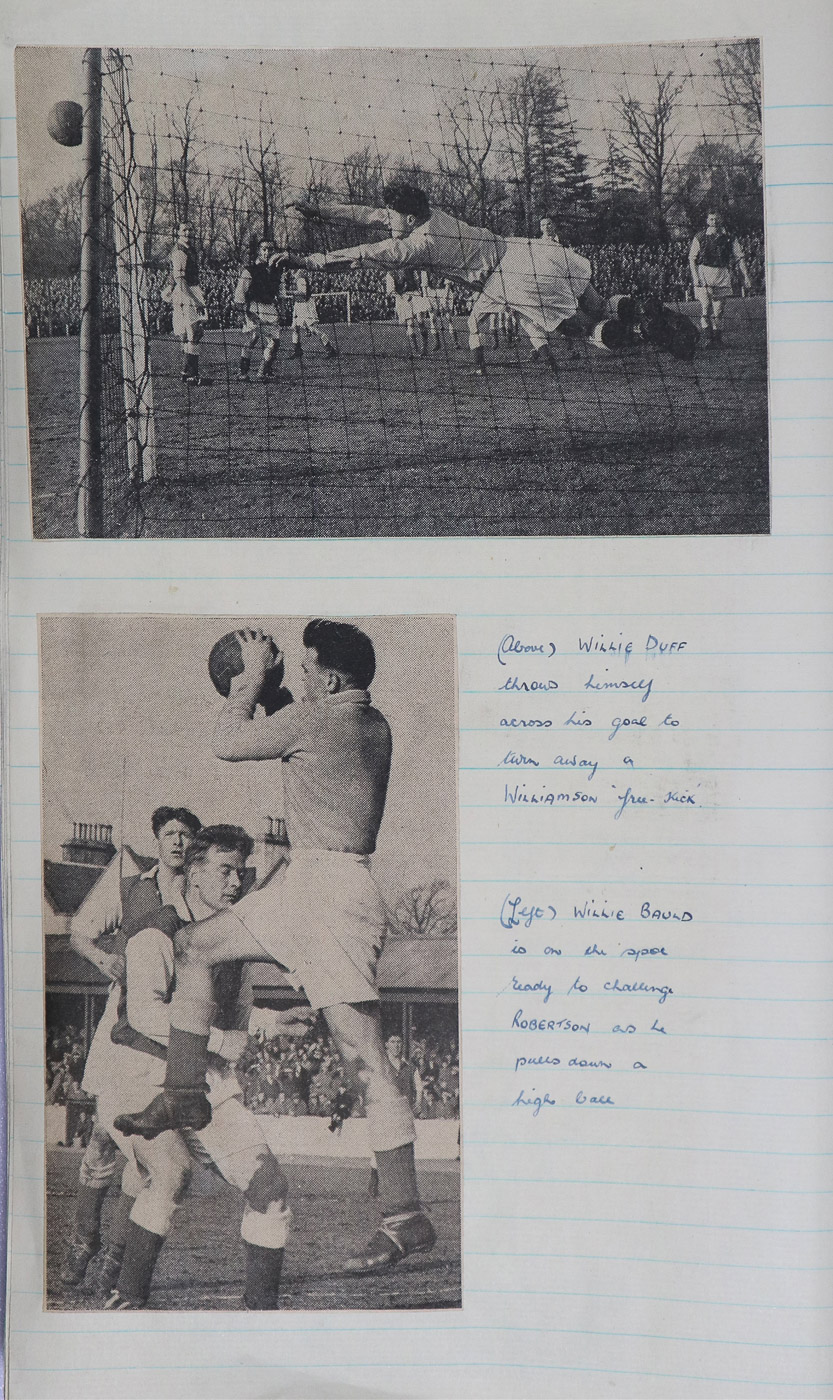 (Above) WILLIE DUFF
throws himself
across his goal to
turn away a
WILLIAMSON 'free-kick'.
(Left) WILLIE BAULD
is on the spot
ready to challenge
ROBERTSON as he
pulls down a
high ball